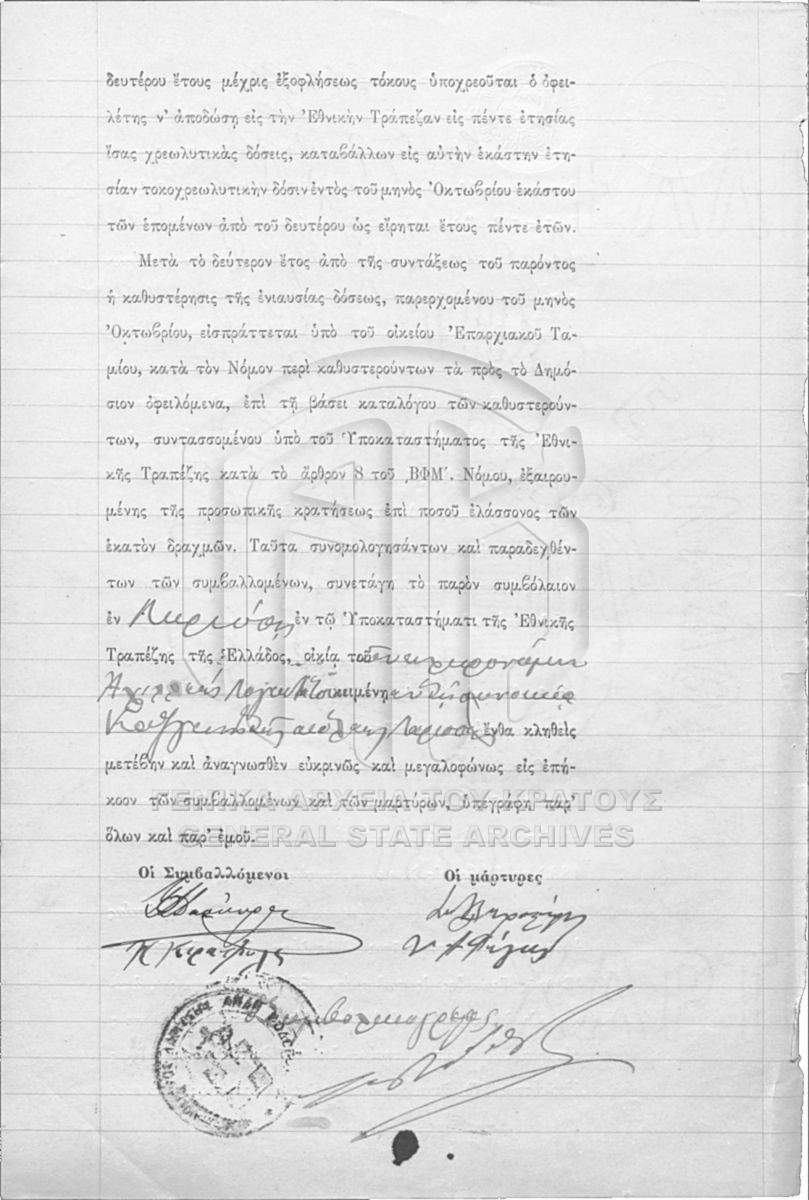 δευτέρου ἔτους μέχρις ἐξοφλήσεως τόκους ὑποχρεοῦται ὁ ὀφει-
λέτης ν' ἀποδώσῃ εἰς τὴν Ἐθνικὴν Τράπεζαν εἰς πέντε ἐτησίας
ἴσας χρεωλυτικὰς δόσεις, καταβάλλων εἰς αὐτὴν ἑκάστην ἐτη-
σίαν τοκοχρεωλυτικὴν δόσιν ἐντὸς τοῦ μηνὸς Ὀκτωβρίου ἑκάστου
τῶν ἑπομένων ἀπὸ τοῦ δευτέρου ὡς εἴρηται ἔτους πέντε ἐτῶν.
Μετὰ τὸ δεύτερον ἔτος ἀπὸ τῆς συντάξεως τοῦ παρόντος
ἡ καθυστέρησις τῆς ἐνιαυσίας δόσεως, παρερχομένου τοῦ μηνὸς
Ὀκτωβρίου, εἰσπράττεται ὑπὸ τοῦ οἰκείου Ἐπαρχιακοῦ Τα-
μίου, κατὰ τὸν Νόμον περὶ καθυστερούντων τὰ πρὸς τὸ Δημό-
σιον ὀφειλόμενα, ἐπὶ τῇ βάσει καταλόγου τῶν καθυστερούν-
των, συντασσομένου ὑπὸ τοῦ Ὑποκαταστήματος τῆς Ἐθνι-
κῆς Τραπέζης κατὰ τὸ ἄρθρον 8 τοῦ ͵ΒΦΜʹ. Νόμου, ἐξαιρου-
μένης τῆς προσωπικῆς κρατήσεως ἐπὶ ποσοῦ ἐλάσσονος τῶν
ἑκατὸν δραχμῶν. Ταῦτα συνομολογησάντων καὶ παραδεχθέν-
των τῶν συμβαλλομένων, συνετάγη τὸ παρὸν συμβόλαιον
ἐν Λαρίσῃ ἐν τῷ Ὑποκαταστήματι τῆς Ἐθνικῆς
Τραπέζης τῆς Ἑλλάδος, οἰκίᾳ τοῦ
κειμένῃ ἐν τῇ συνοικίᾳ
Λαρίσσης ἔνθα κληθεὶς
μετέβην καὶ ἀναγνωσθὲν εὐκρινῶς καὶ μεγαλοφώνως εἰς ἐπή-
κοον τῶν συμβαλλομένων καὶ τῶν μαρτύρων, ὑπεγράφη παρ'
ὅλων καὶ παρ' ἐμοῦ.
ΓΕΝΙΚΑ ΑΡΧΕΙΑ ΤΟΥ ΚΡΑΤΟΥΣ
GENERAL STATE ARCHIVES
Οἱ Συμβαλλόμενοι Οἱ μάρτυρες
συμβολαιογράφος